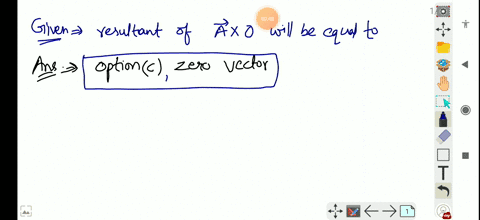 Given ⇒ resultant of A⃗×0 will be equal to
Ans :⇒ option(c), zero vector